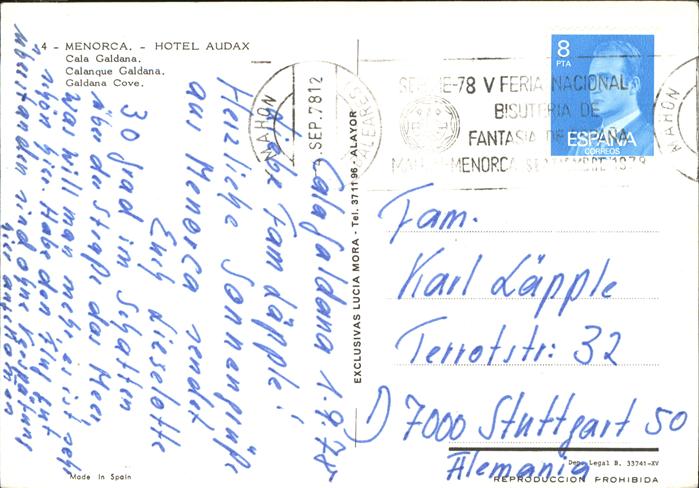 4 - MENORCA. - HOTEL AUDAX
Cala Galdana.
Calanque Galdana.
Galdana Cove.
Cala Galdana 1.9.78
Liebe Fam Läpple!
Herzliche Sonnengrüße
aus Menorca sendet
Euch Lieselotte
30 Grad im Schatten
über der Straße das Meer,
was will man mehr, es ist sehr
schön hier. Habe den Flug gut
überstanden und ohne Verspätung
hier angekommen
Made in Spain
EXCLUSIVAS LUCIA MORA - Tel. 371196 - ALAYOR
MAHON
SEP. 78 12
BALEARES
8
PTA
ESPAÑA
CORREOS
V FERIA NACIONAL
BISUTERIA DE
FANTASIA DE
MENORCA SEPTIEMBRE 1978
MAHON
Fam.
Karl Läpple
Terrotstr: 32
D) 7000 Stuttgart 50
Alemania
Dep. Legal B. 33741-XV
REPRODUCCION PROHIBIDA